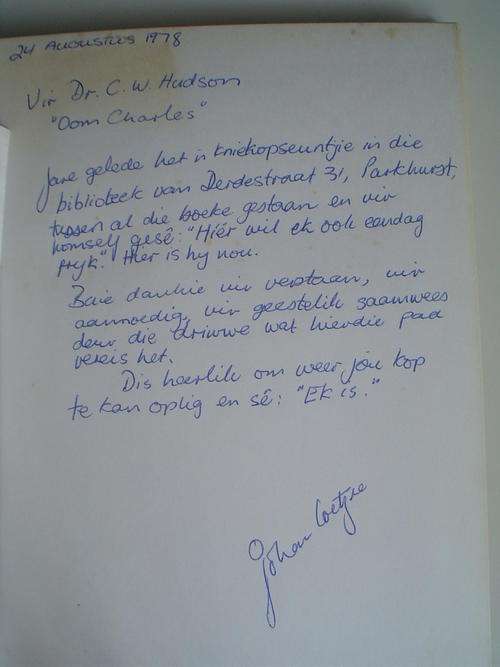 24 Augustus 1978
Vir Dr. C. W. Hudson
"Oom Charles"
Jare gelede het 'n kniekopseuntjie in die
biblioteek van Derdestraat 31, Parkhurst,
tussen al die boeke gestaan en vir
homself gesê: "Hiér wil ek ook eendag
pryk." Hier is hy nou.
Baie dankie vir verstaan, vir
aanmoedig, vir geestelik saamwees
deur die driwwe wat hierdie pad
vereis het.
Dis heerlik om weer jou kop
te kan oplig en sê: "Ek is."
Johan Coetzee